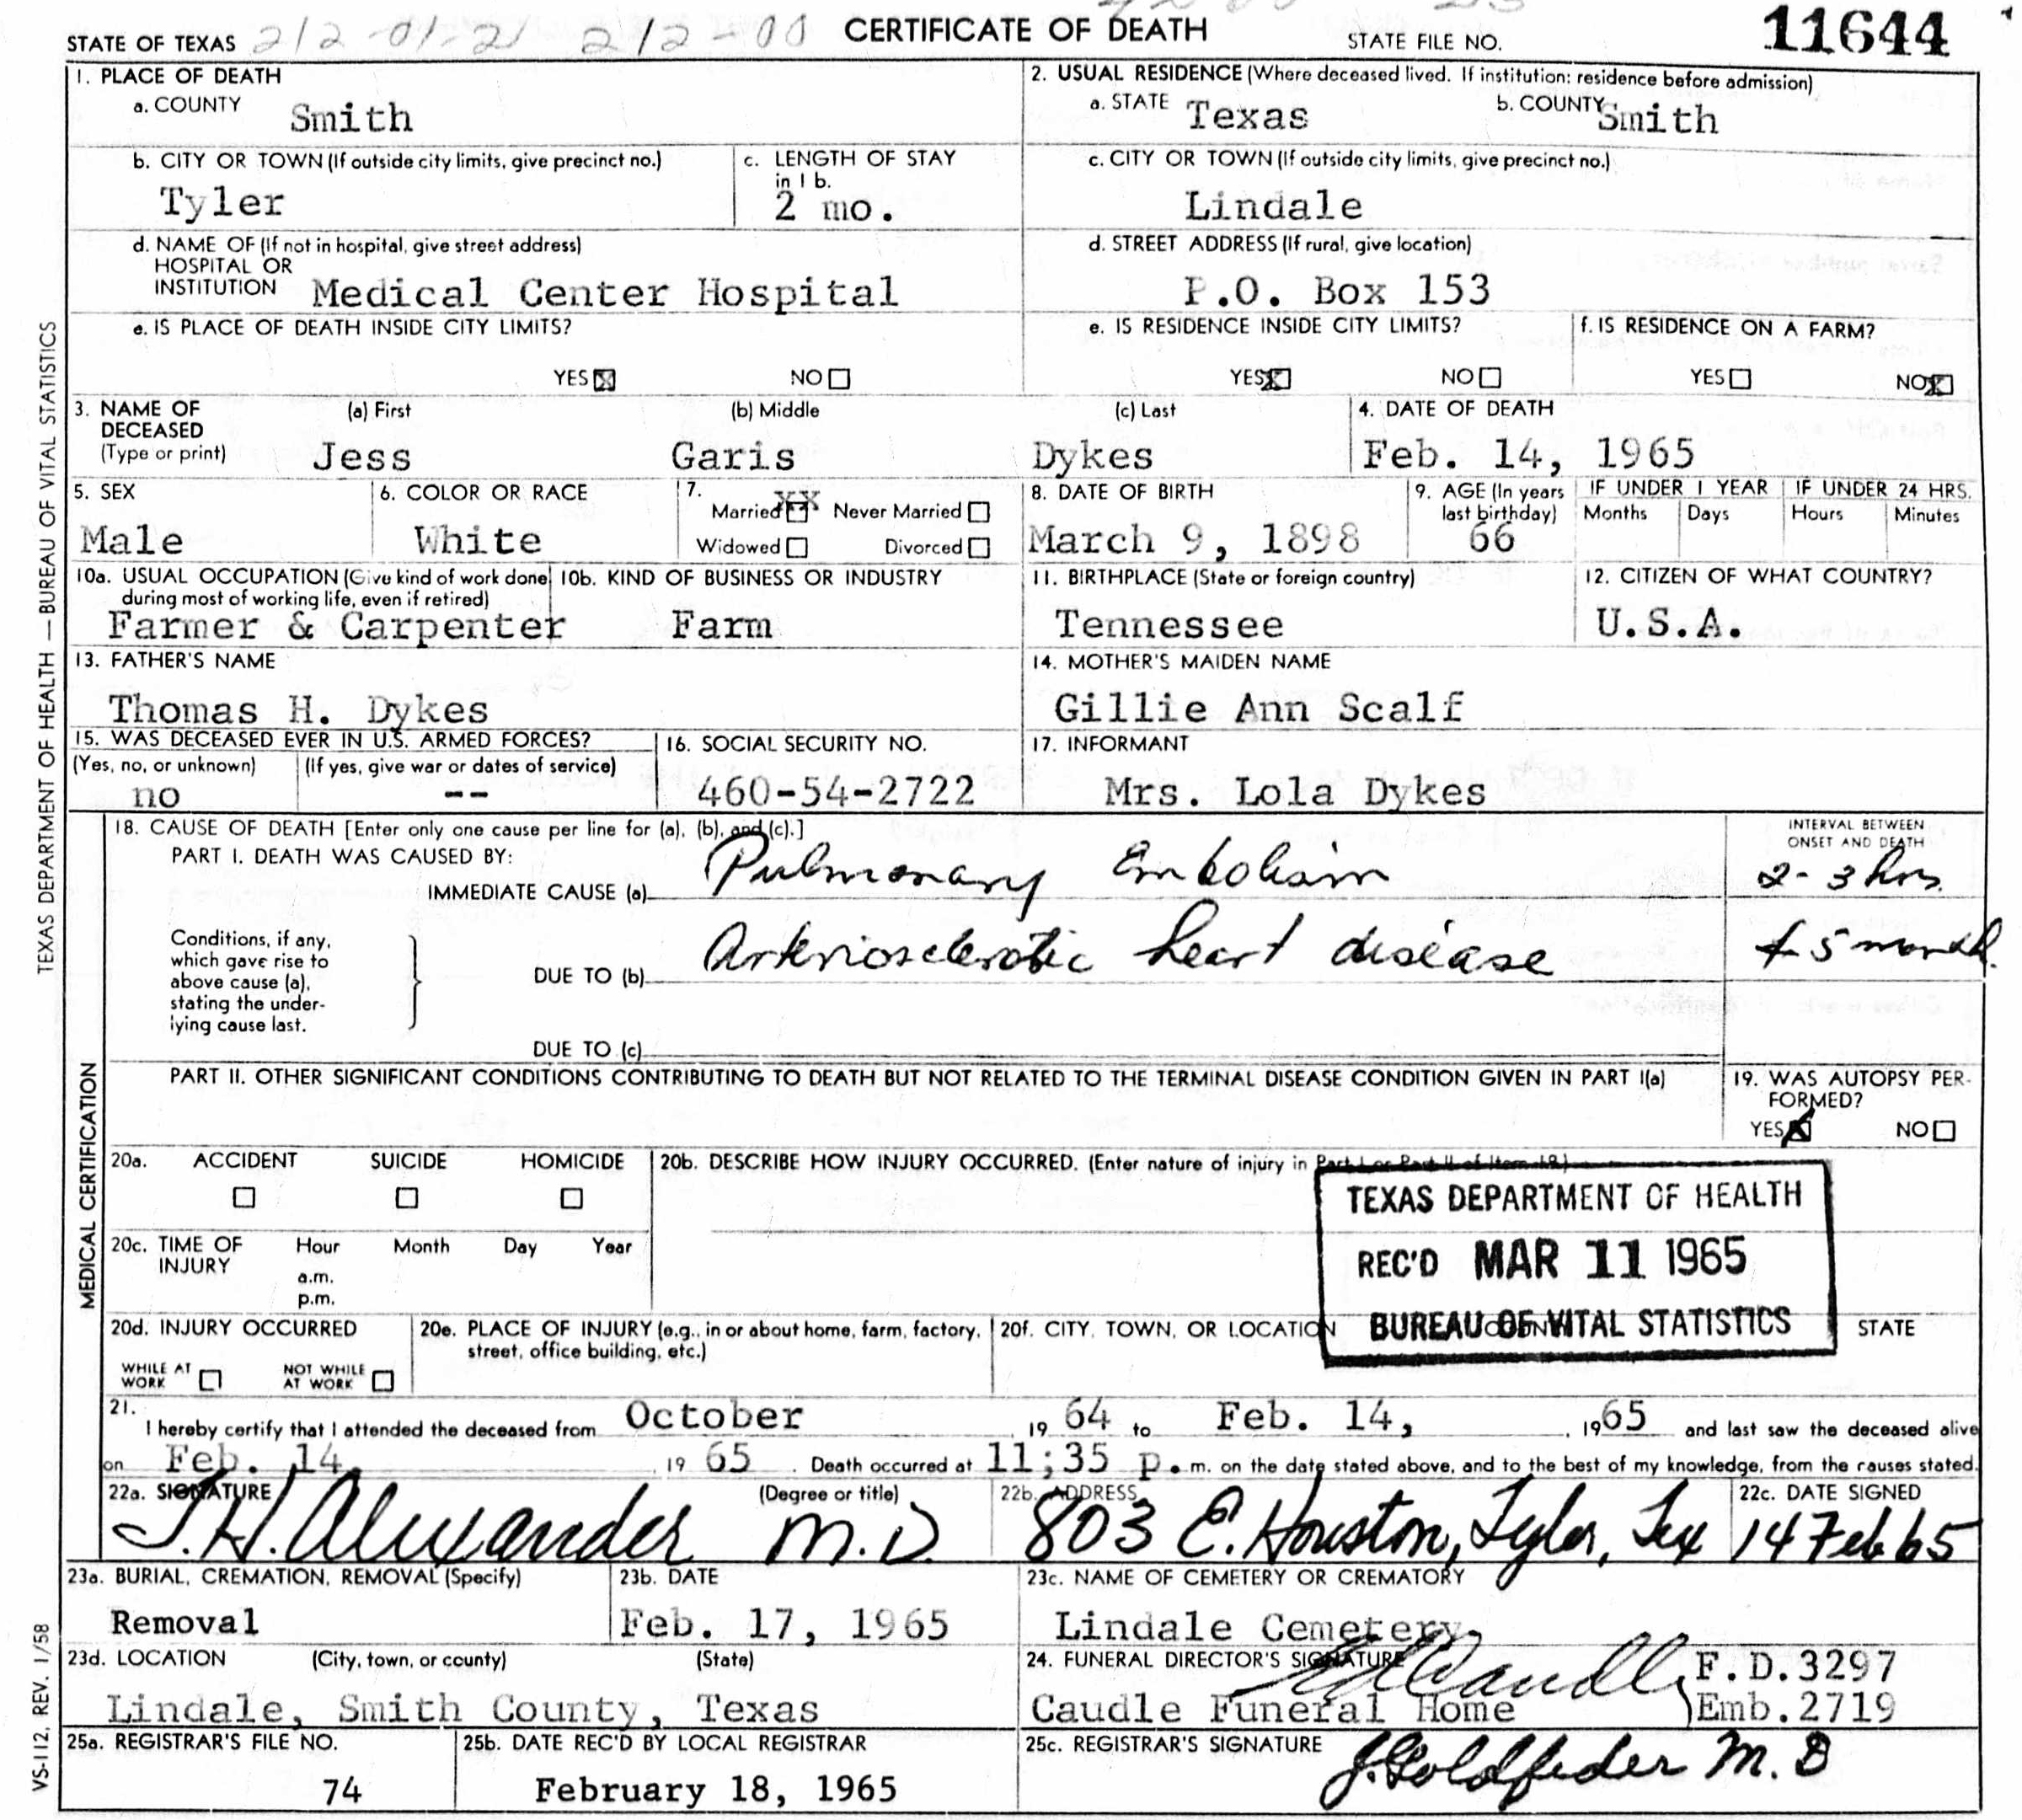 STATE OF TEXAS 212-01-21 212-00 CERTIFICATE OF DEATH STATE FILE NO. 11644
1. PLACE OF DEATH
a. COUNTY Smith
2. USUAL RESIDENCE (Where deceased lived. If institution: residence before admission)
a. STATE Texas b. COUNTY Smith
b. CITY OR TOWN (If outside city limits, give precinct no.) Tyler
c. LENGTH OF STAY in 1 b. 2 mo.
c. CITY OR TOWN (If outside city limits, give precinct no.) Lindale
d. NAME OF (If not in hospital, give street address)
HOSPITAL OR
INSTITUTION Medical Center Hospital
d. STREET ADDRESS (If rural, give location)
P.O. Box 153
e. IS PLACE OF DEATH INSIDE CITY LIMITS?
YES X NO
e. IS RESIDENCE INSIDE CITY LIMITS?
YES X NO
f. IS RESIDENCE ON A FARM?
YES NO X
3. NAME OF DECEASED (Type or print)
(a) First Jess
(b) Middle Garis
(c) Last Dykes
4. DATE OF DEATH
Feb. 14, 1965
5. SEX
Male
6. COLOR OR RACE
White
7. Married XX Never Married
Widowed Divorced
8. DATE OF BIRTH
March 9, 1898
9. AGE (In years last birthday)
66
IF UNDER 1 YEAR
Months Days
IF UNDER 24 HRS.
Hours Minutes
10a. USUAL OCCUPATION (Give kind of work done during most of working life, even if retired)
Farmer & Carpenter
10b. KIND OF BUSINESS OR INDUSTRY
Farm
11. BIRTHPLACE (State or foreign country)
Tennessee
12. CITIZEN OF WHAT COUNTRY?
U.S.A.
13. FATHER'S NAME
Thomas H. Dykes
14. MOTHER'S MAIDEN NAME
Gillie Ann Scalf
15. WAS DECEASED EVER IN U.S. ARMED FORCES?
(Yes, no, or unknown) (If yes, give war or dates of service)
no --
16. SOCIAL SECURITY NO.
460-54-2722
17. INFORMANT
Mrs. Lola Dykes
18. CAUSE OF DEATH [Enter only one cause per line for (a), (b), and (c).]
INTERVAL BETWEEN
ONSET AND DEATH
PART I. DEATH WAS CAUSED BY:
IMMEDIATE CAUSE (a) Pulmonary Embolism 2-3 hrs.
Conditions, if any,
which gave rise to
above cause (a),
stating the under-
lying cause last.
DUE TO (b) Arteriosclerotic heart disease 5 month
DUE TO (c)
PART II. OTHER SIGNIFICANT CONDITIONS CONTRIBUTING TO DEATH BUT NOT RELATED TO THE TERMINAL DISEASE CONDITION GIVEN IN PART I(a)
19. WAS AUTOPSY PER-
FORMED?
YES X NO
20a. ACCIDENT SUICIDE HOMICIDE
20b. DESCRIBE HOW INJURY OCCURRED. (Enter nature of injury in Part I or Part II of Item 18.)
20c. TIME OF INJURY
Hour Month Day Year
a.m.
p.m.
TEXAS DEPARTMENT OF HEALTH
REC'D MAR 11 1965
BUREAU OF VITAL STATISTICS
20d. INJURY OCCURRED
WHILE AT WORK NOT WHILE AT WORK
20e. PLACE OF INJURY (e.g., in or about home, farm, factory,
street, office building, etc.)
20f. CITY, TOWN, OR LOCATION STATE
21.
I hereby certify that I attended the deceased from October, 19 64 to Feb. 14, , 19 65 and last saw the deceased alive
on Feb. 14, , 19 65. Death occurred at 11;35 p.m. on the date stated above, and to the best of my knowledge, from the causes stated.
22a. SIGNATURE (Degree or title)
J.H. Alexander M.D.
22b. ADDRESS
803 E. Houston, Tyler, Tex
22c. DATE SIGNED
14 Feb 65
23a. BURIAL, CREMATION, REMOVAL (Specify)
Removal
23b. DATE
Feb. 17, 1965
23c. NAME OF CEMETERY OR CREMATORY
Lindale Cemetery
23d. LOCATION (City, town, or county) (State)
Lindale, Smith County, Texas
24. FUNERAL DIRECTOR'S SIGNATURE
F.D.3297
Caudle Funeral Home Emb.2719
25a. REGISTRAR'S FILE NO.
74
25b. DATE REC'D BY LOCAL REGISTRAR
February 18, 1965
25c. REGISTRAR'S SIGNATURE
J. Goldfeder M.D
TEXAS DEPARTMENT OF HEALTH — BUREAU OF VITAL STATISTICS
MEDICAL CERTIFICATION
VS-112, REV. 1/58